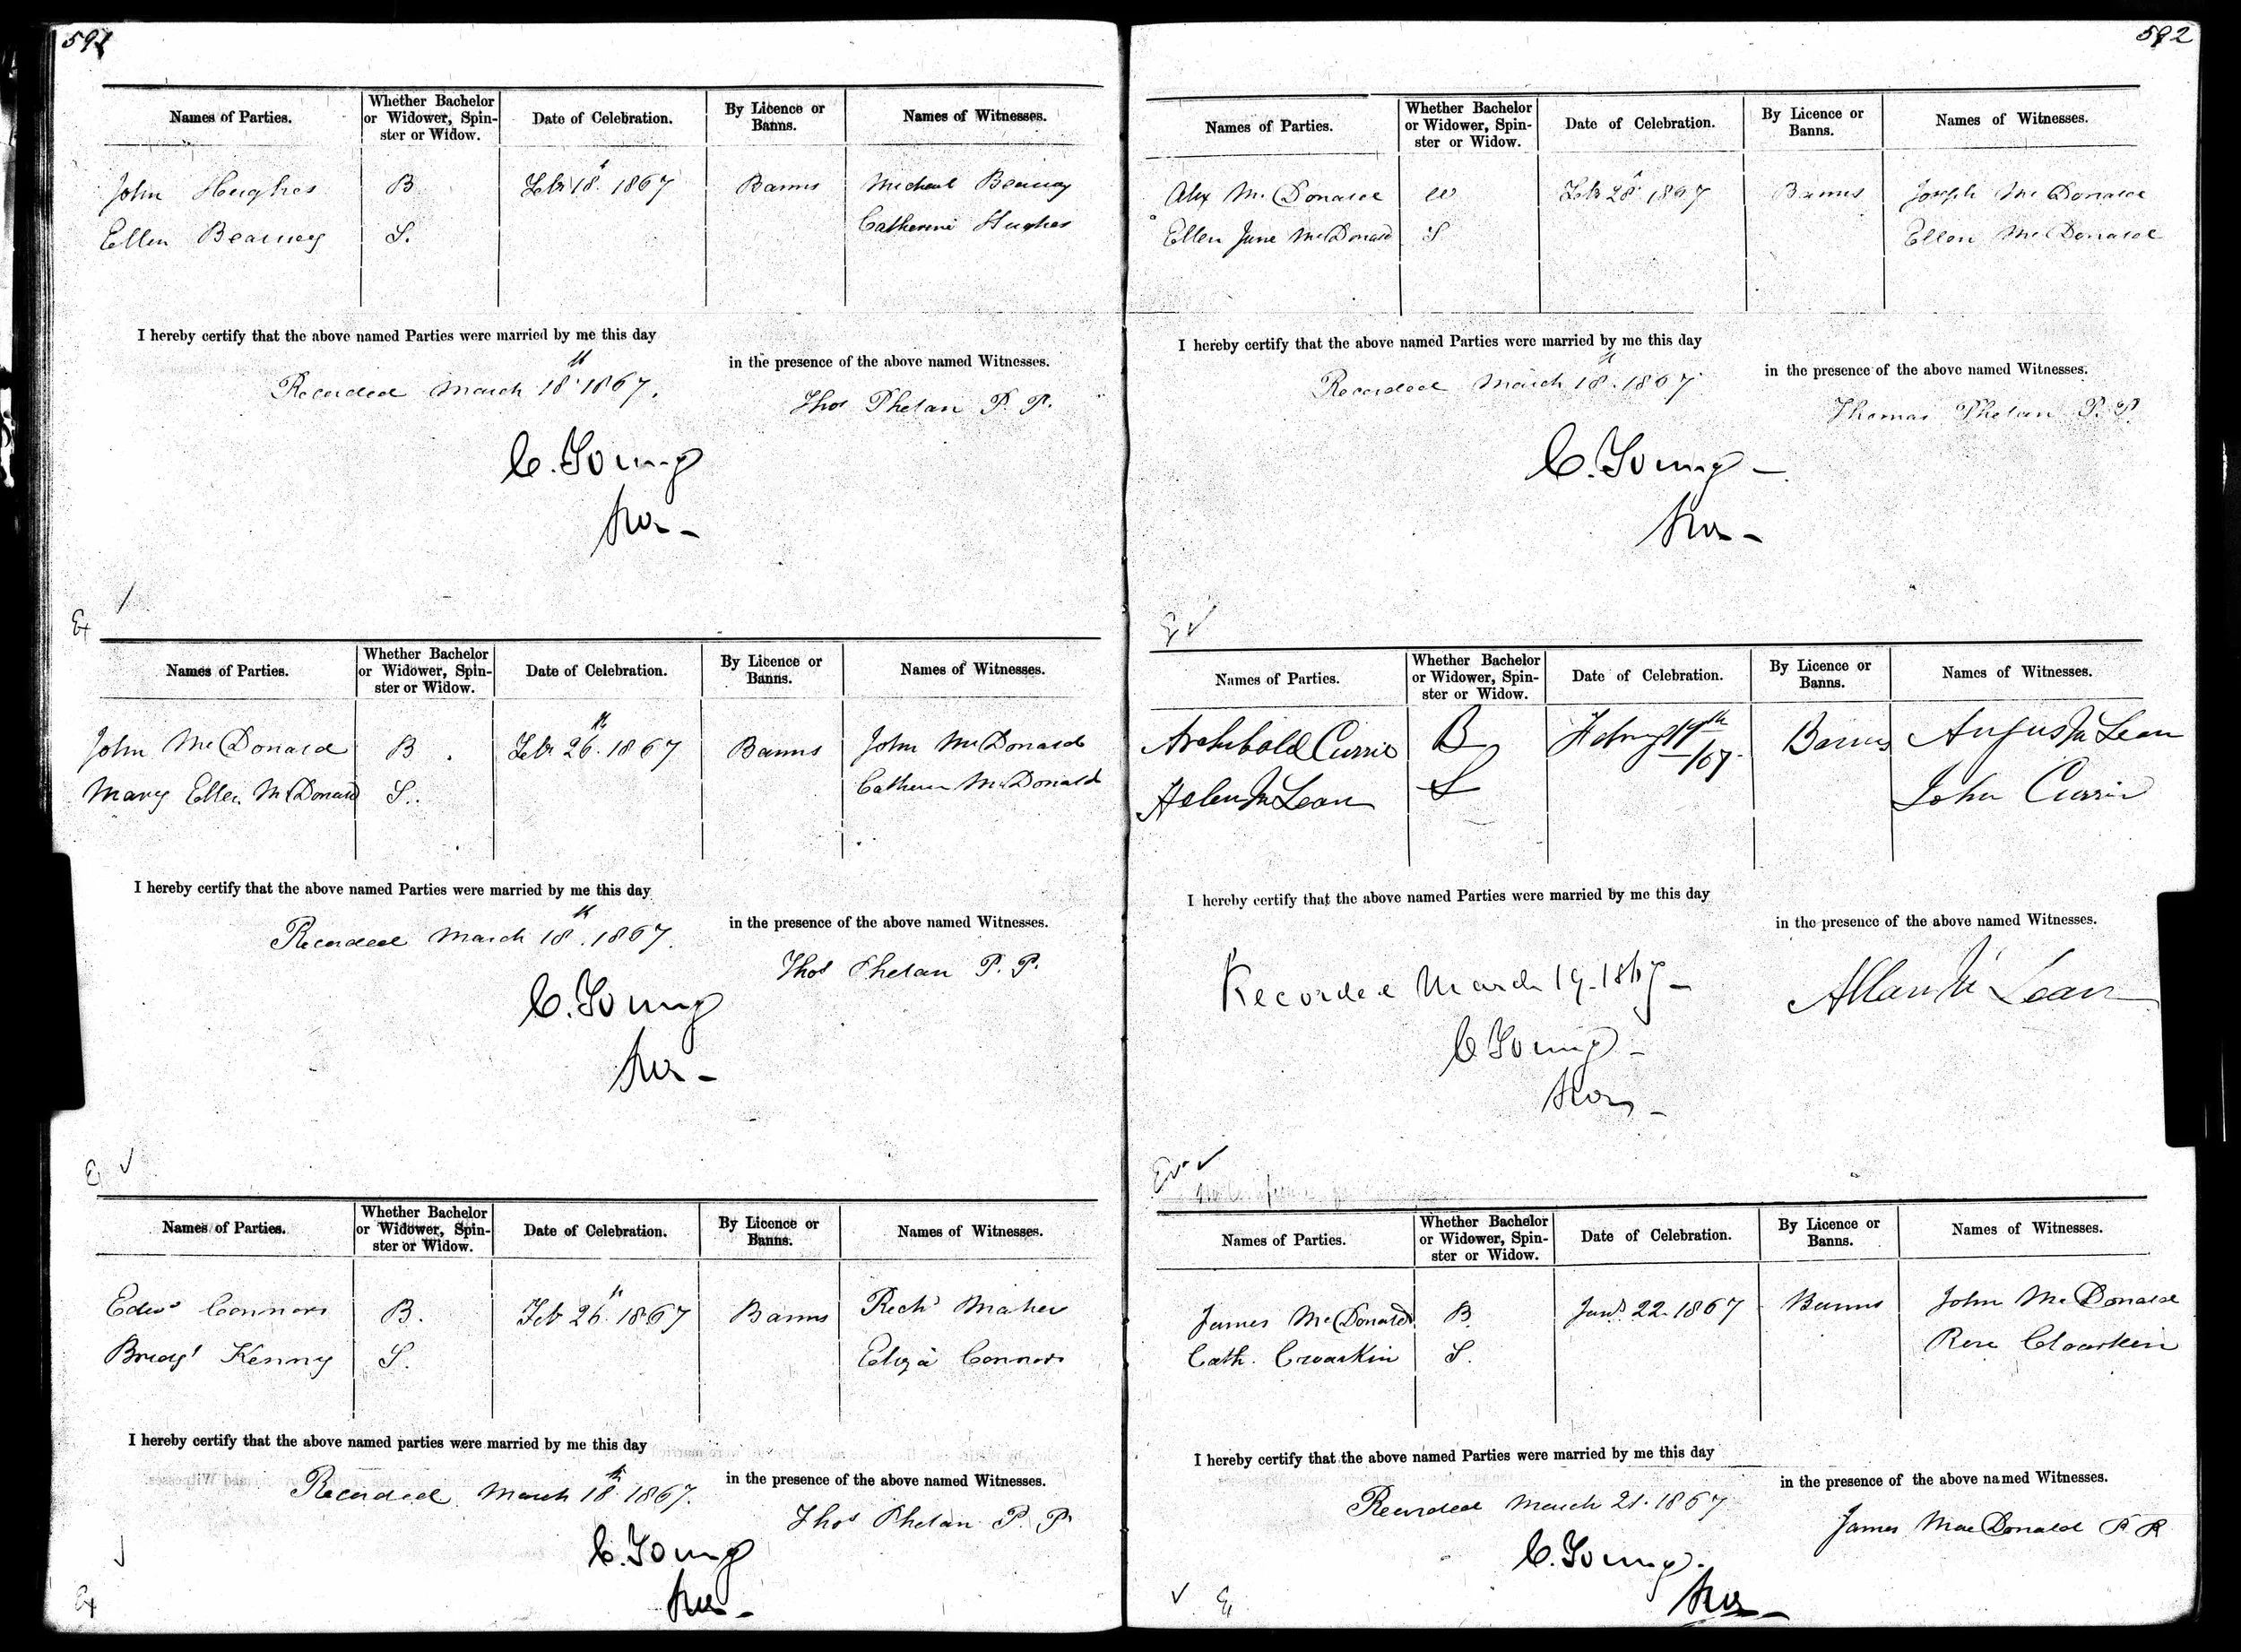 591
Names of Parties. Whether Bachelor or Widower, Spinster or Widow. Date of Celebration. By Licence or Banns. Names of Witnesses.
John Hughes B. Feb 18th 1867 Banns Michael Bearney
Ellen Bearney S. Catherine Hughes
I hereby certify that the above named Parties were married by me this day
in the presence of the above named Witnesses.
Recorded March 18th 1867.
Thos Phelan P. P.
C. Young
Ex
Names of Parties. Whether Bachelor or Widower, Spinster or Widow. Date of Celebration. By Licence or Banns. Names of Witnesses.
John McDonald B. Feb 26th 1867 Banns John McDonald
Mary Ellen McDonald S. McDonald
I hereby certify that the above named Parties were married by me this day
in the presence of the above named Witnesses.
Recorded March 18th 1867.
Thos Phelan P. P.
C. Young
Names of Parties. Whether Bachelor or Widower, Spinster or Widow. Date of Celebration. By Licence or Banns. Names of Witnesses.
Edwd Connors B. Feb 26th 1867 Banns Richd Maher
Bridgt Kenny S. Eliza Connors
I hereby certify that the above named parties were married by me this day
in the presence of the above named Witnesses.
Recorded March 18th 1867.
Thos Phelan P. P.
C. Young
Ex
592
Names of Parties. Whether Bachelor or Widower, Spinster or Widow. Date of Celebration. By Licence or Banns. Names of Witnesses.
Alex McDonald W Feb 28th 1867 Banns Joseph McDonald
Ellen Jane McDonald S Ellen McDonald
I hereby certify that the above named Parties were married by me this day
in the presence of the above named Witnesses.
Recorded March 18th 1867
Thomas Phelan P. P.
C. Young
Names of Parties. Whether Bachelor or Widower, Spinster or Widow. Date of Celebration. By Licence or Banns. Names of Witnesses.
Archibald Currie B /67. Banns Angus McLean
Helen McLean S John Currie
I hereby certify that the above named Parties were married by me this day
in the presence of the above named Witnesses.
Recorded March 19. 1867
Allan McLean
C. Young
Names of Parties. Whether Bachelor or Widower, Spinster or Widow. Date of Celebration. By Licence or Banns. Names of Witnesses.
James McDonald B. Jany 22. 1867 Banns John McDonald
Cath. Croarkin S. Rose
I hereby certify that the above named Parties were married by me this day
in the presence of the above named Witnesses.
Recorded March 21. 1867
James MacDonald
C. Young